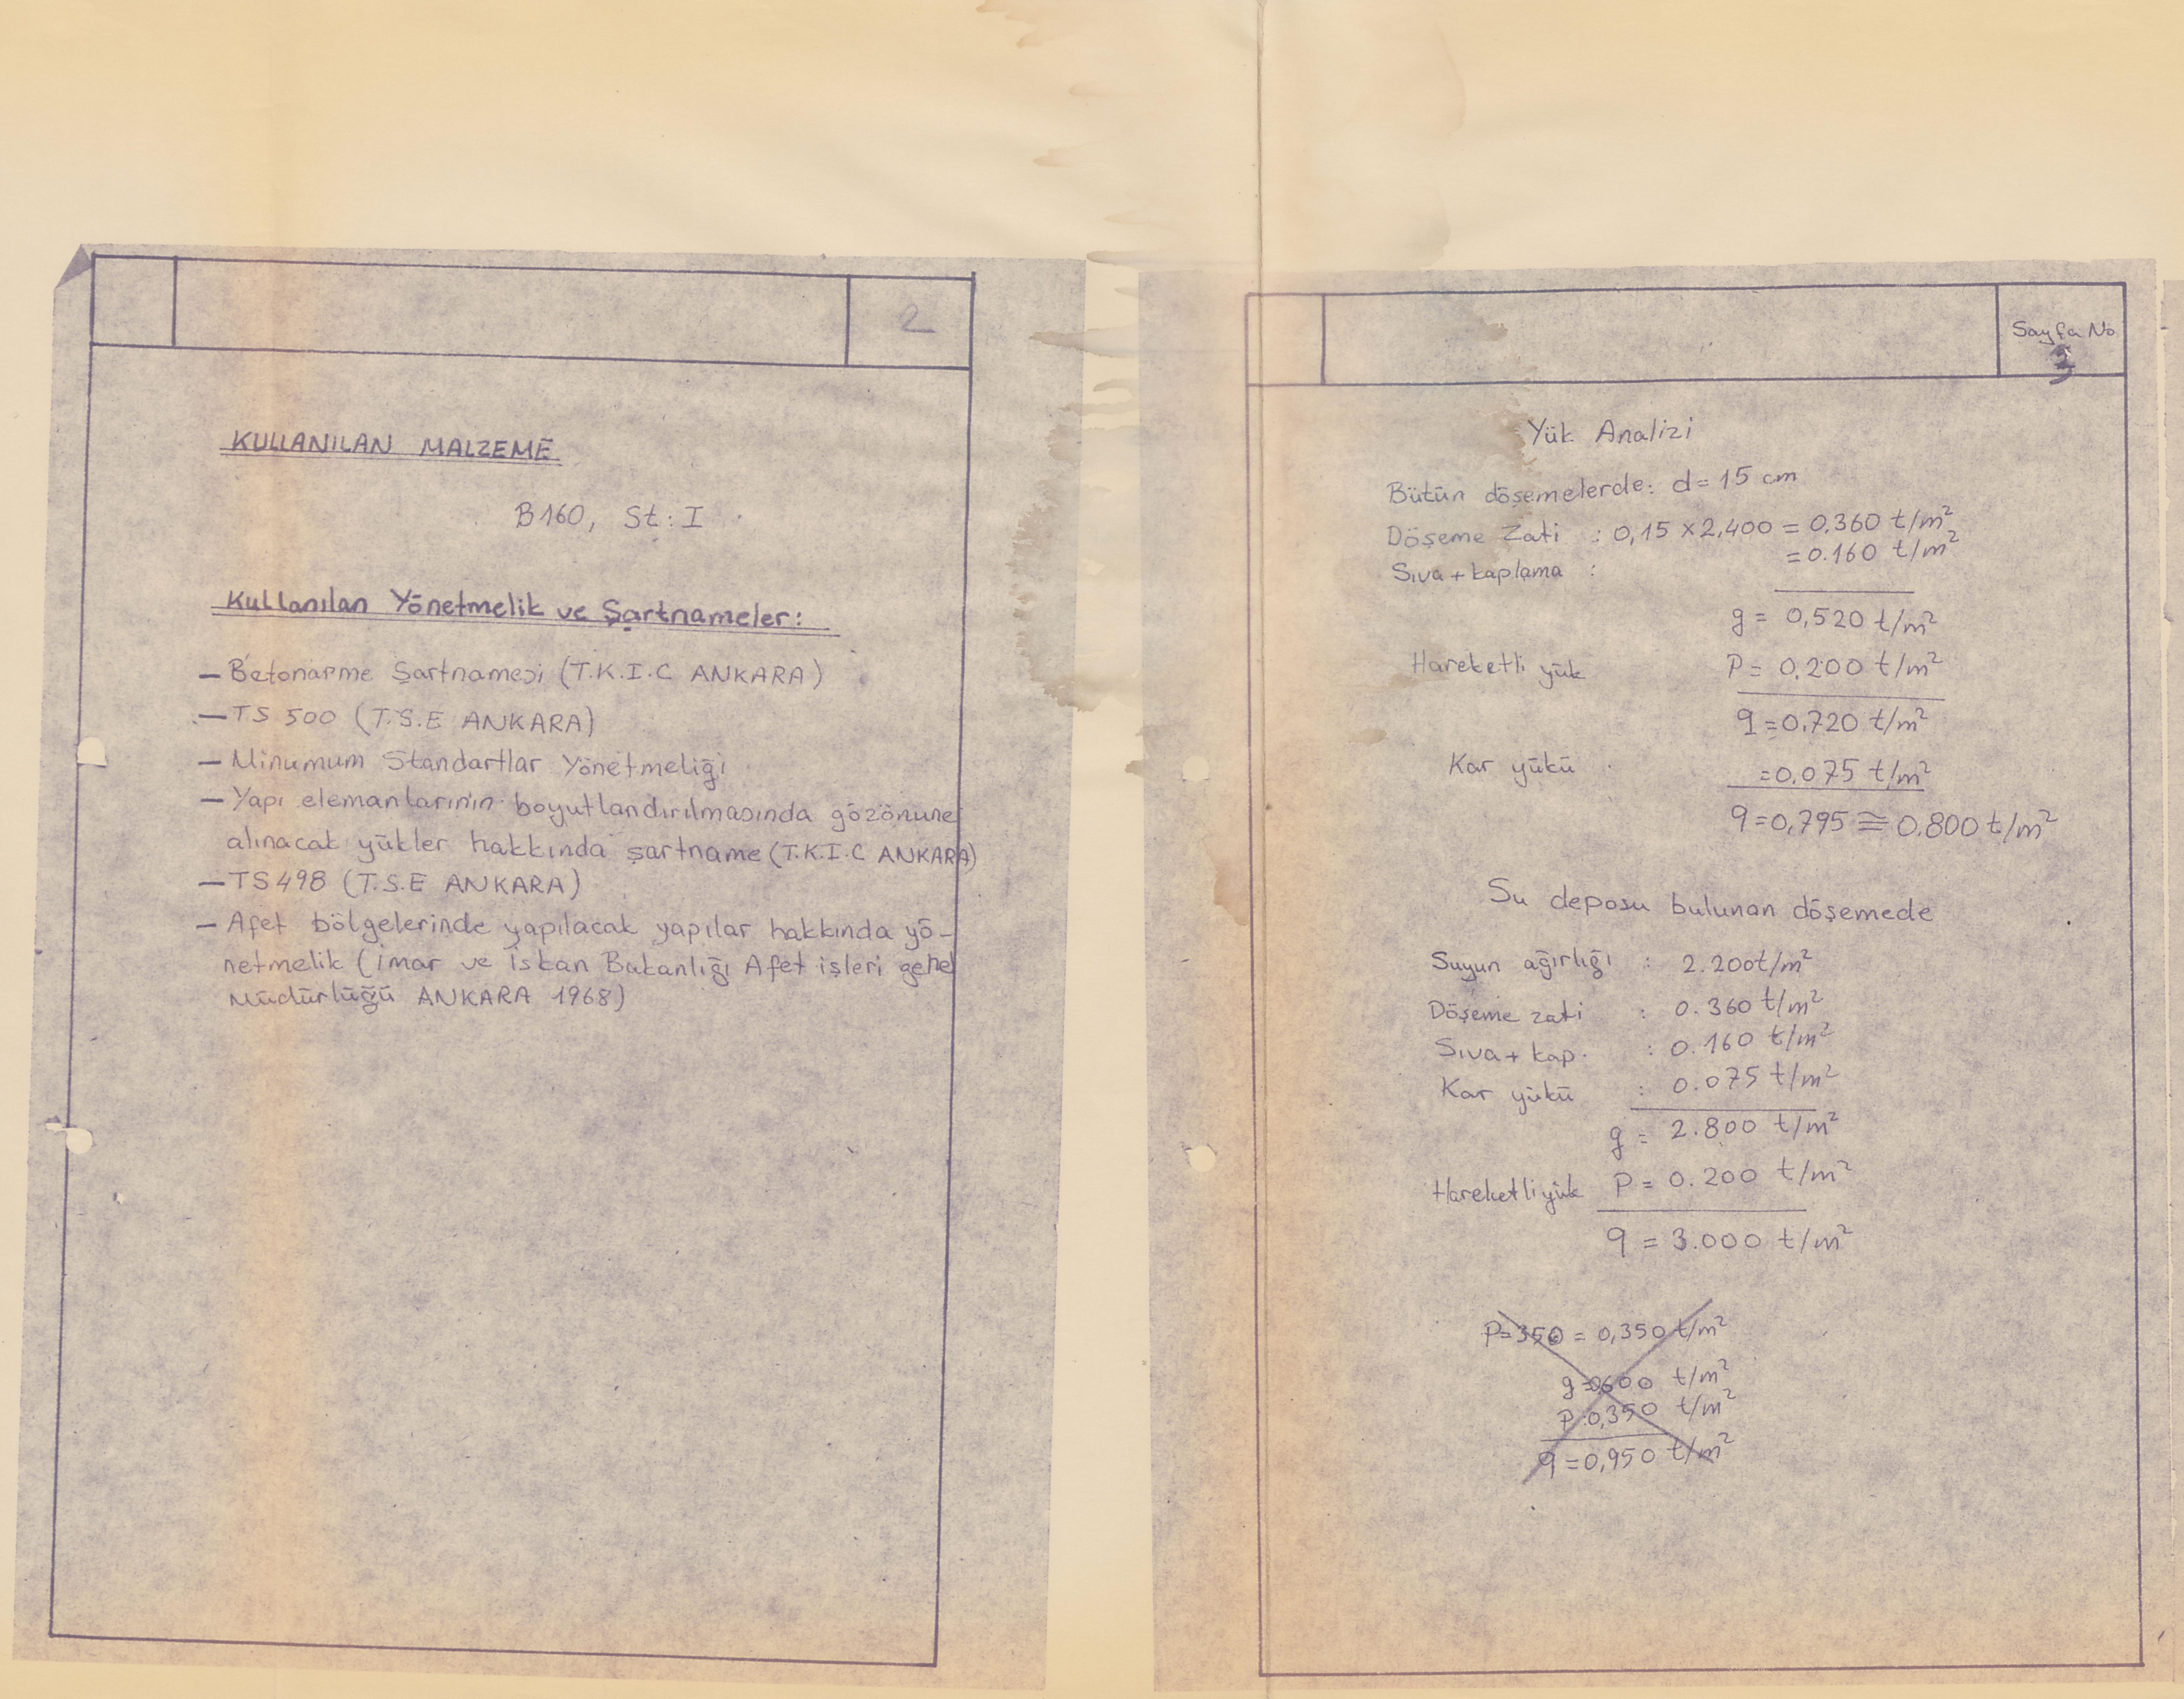 2
KULLANILAN MALZEME
B160, St: I
Kullanılan Yönetmelik ve Şartnameler:
— Betonarme Şartnamesi (T.K.I.C ANKARA)
— TS 500 (T.S.E ANKARA)
— Minumum Standartlar Yönetmeliği
— Yapı elemanlarının boyutlandırılmasında gözönüne
alınacak yükler hakkında şartname (T.K.I.C ANKARA)
— TS 498 (T.S.E ANKARA)
— Afet bölgelerinde yapılacak yapılar hakkında yö-
netmelik (imar ve iskan Bakanlığı Afet işleri genel
Müdürlüğü ANKARA 1968)
Sayfa No
3
Yük Analizi
Bütün döşemelerde: d= 15 cm
Döşeme Zati : 0,15 x 2,400 = 0.360 t/m²
Sıva + kaplama : = 0.160 t/m²
g = 0,520 t/m²
Hareketli yük P= 0.200 t/m²
q = 0.720 t/m²
Kar yükü = 0.075 t/m²
q = 0,795 ≅ 0.800 t/m²
Su deposu bulunan döşemede
Suyun ağırlığı : 2.200t/m²
Döşeme zati : 0.360 t/m²
Sıva + kap. : 0.160 t/m²
Kar yükü : 0.075 t/m²
g = 2.800 t/m²
Hareketli yük P = 0.200 t/m²
q = 3.000 t/m²
P=350 = 0,350 t/m²
g =0,600 t/m²
P :0,350 t/m²
q =0,950 t/m²